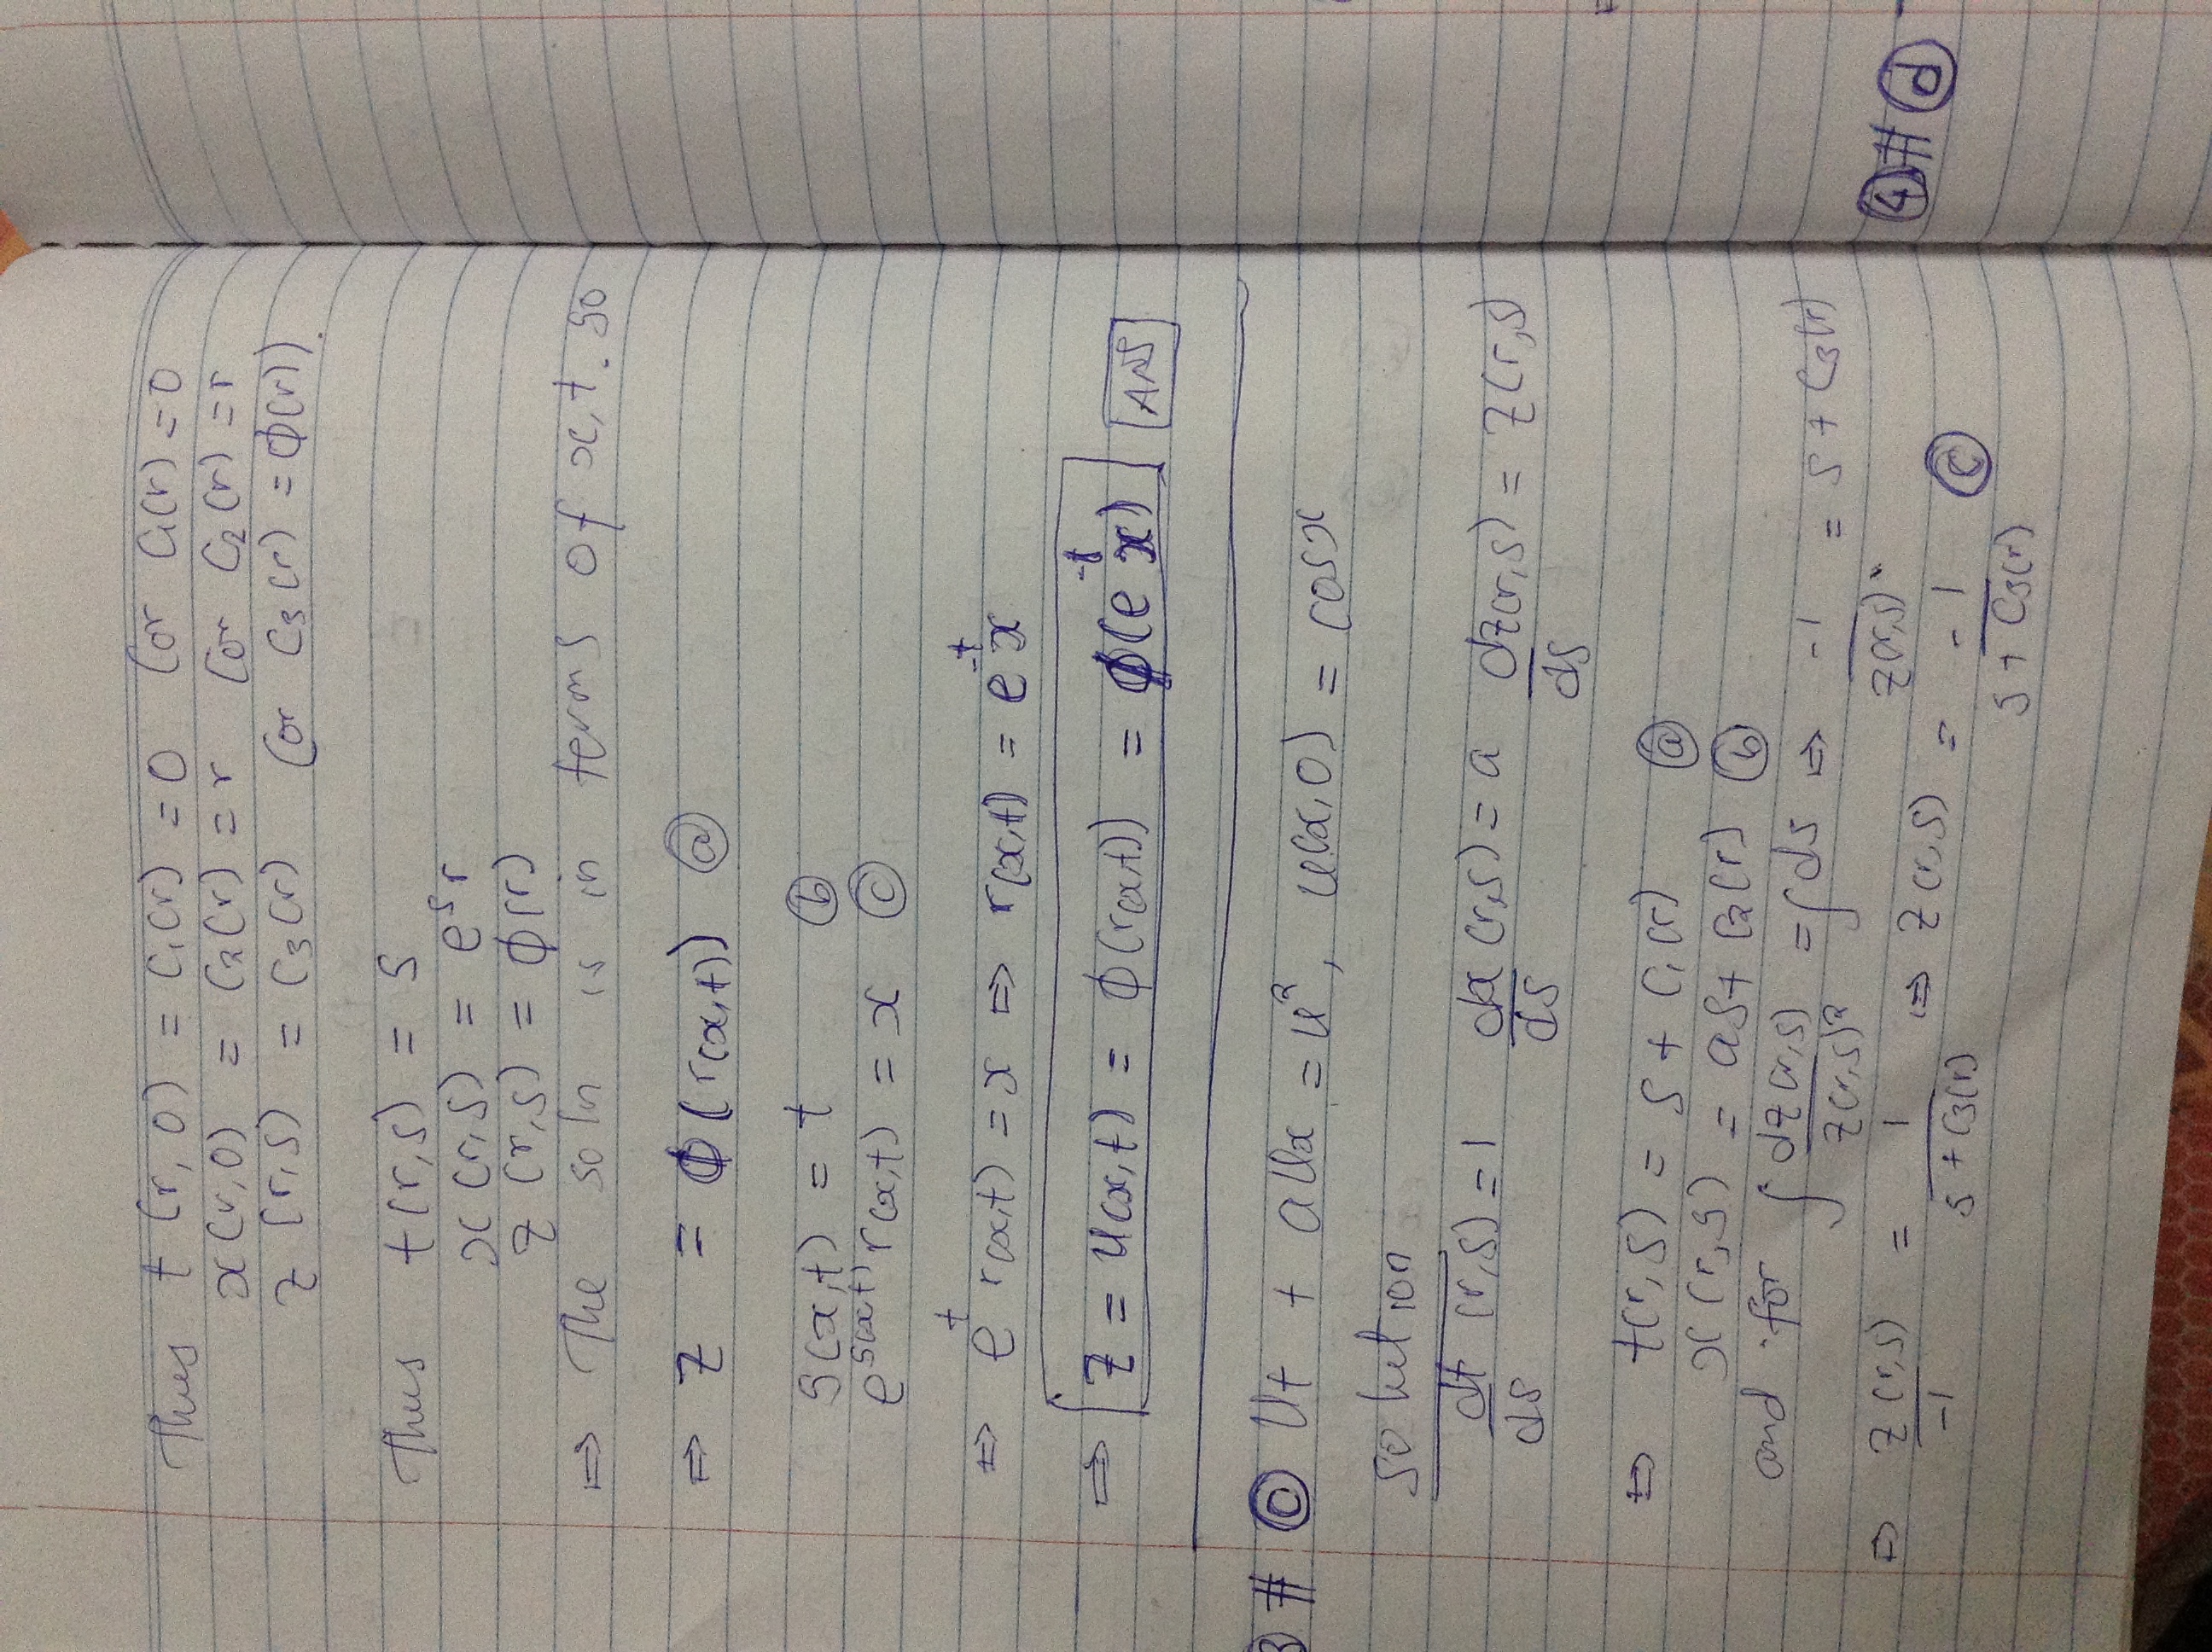 Thus t(r,0) = C₁(r) = 0 (or C₁(r) = 0
x(r,0) = C₂(r) = r (or C₂(r) = r
z(r,s) = C₃(r) (or C₃(r) = φ(r)).
Thus t(r,s) = s
x(r,s) = eˢr
z(r,s) = φ(r)
⇒ The soln is in terms of x,t. so
⇒ z = φ(r(x,t)) ⓐ
s(x,t) = t ⓑ
e^s(x,t) r(x,t) = x ⓒ
⇒ e^t r(x,t) = x ⇒ r(x,t) = e^-t x
⇒ z = u(x,t) = φ(r(x,t)) = φ(e^-t x) ANS
3 # ⓒ Ut + aUx = u², u(x,0) = cosx
solution
dt/ds (r,s) = 1 dx/ds (r,s) = a dz(r,s)/ds = z(r,s)
⇒ t(r,s) = s + C₁(r) ⓐ
x(r,s) = as + C₂(r) ⓑ
and for ∫ dz(r,s)/z(r,s)² = ∫ds ⇒ -1/z(r,s) = s + C₃(r)
⇒ z(r,s)/-1 = 1/s + C₃(r) ⇒ z(r,s) = -1/s + C₃(r) ⓒ
④ # ⓓ